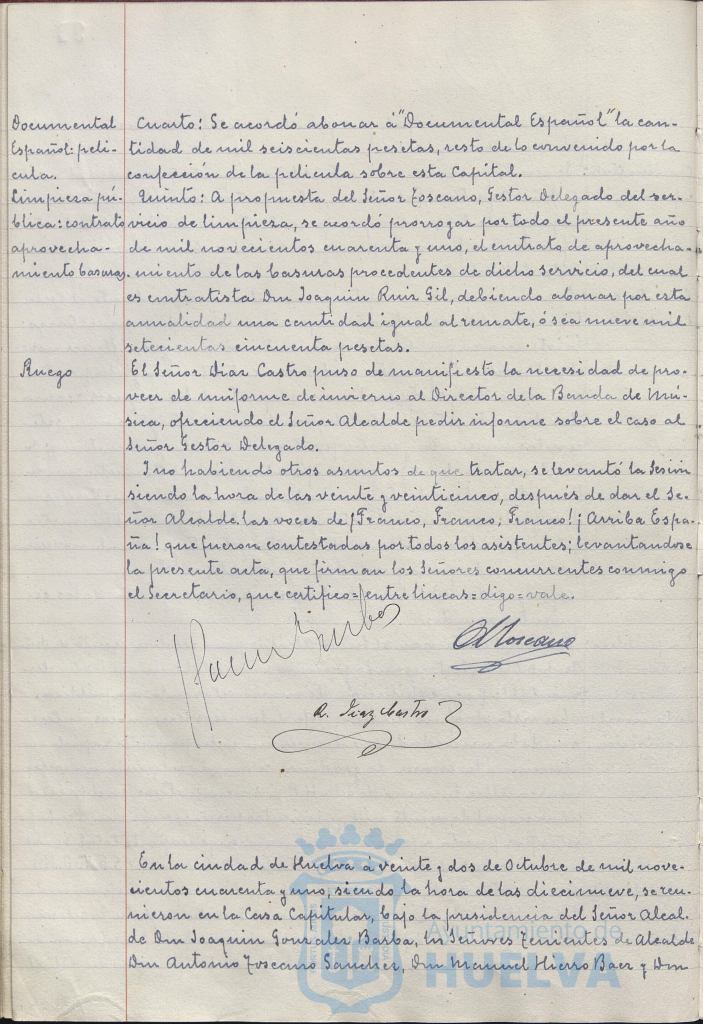 Documental
Español: pelí-
cula.
Cuarto: Se acordó abonar á "Documental Español" la can-
tidad de mil seiscientas pesetas, resto de lo convenido por la
confección de la pelicula sobre esta Capital.
Limpieza pú-
blica: contrato
aprovecha-
miento basuras.
Quinto: A propuesta del Señor Toscano, Gestor Delegado del ser-
vicio de limpieza, se acordó prorrogar por todo el presente año
de mil novecientos cuarenta y uno, el contrato de aprovecha-
miento de las basuras procedentes de dicho servicio, del cual
es contratista Don Joaquin Ruiz Gil, debiendo abonar por esta
anualidad una cantidad igual al remate, ó sea nueve mil
setecientas cincuenta pesetas.
Ruego
El Señor Díaz Castro puso de manifiesto la necesidad de pro-
veer de uniforme de invierno al Director de la Banda de Mú-
sica, ofreciendo el Señor Alcalde pedir informe sobre el caso al
Señor Gestor Delegado.
I no habiendo otros asuntos de que tratar, se levantó la Sesión
siendo la hora de las veinte y veinticinco, después de dar el Se-
ñor Alcalde las voces de ¡Franco, Franco, Franco! ¡Arriba Espa-
ña! que fueron contestadas por todos los asistentes; levantandose
la presente acta, que firman los Señores concurrentes conmigo
el Secretario, que certifico=entre lineas=digo=vale.
A Toscano
A. Diaz Castro
En la ciudad de Huelva á veinte y dos de Octubre de mil nove-
cientos cuarenta y uno, siendo la hora de las diecinueve, se reu-
nieron en la Casa Capitular, bajo la presidencia del Señor Alcal-
de Don Joaquin Gonzalez Barba, los Señores Tenientes de Alcalde
Don Antonio Toscano Sanchez, Don Manuel Hierro Baez y Don
Ayuntamiento de
HUELVA